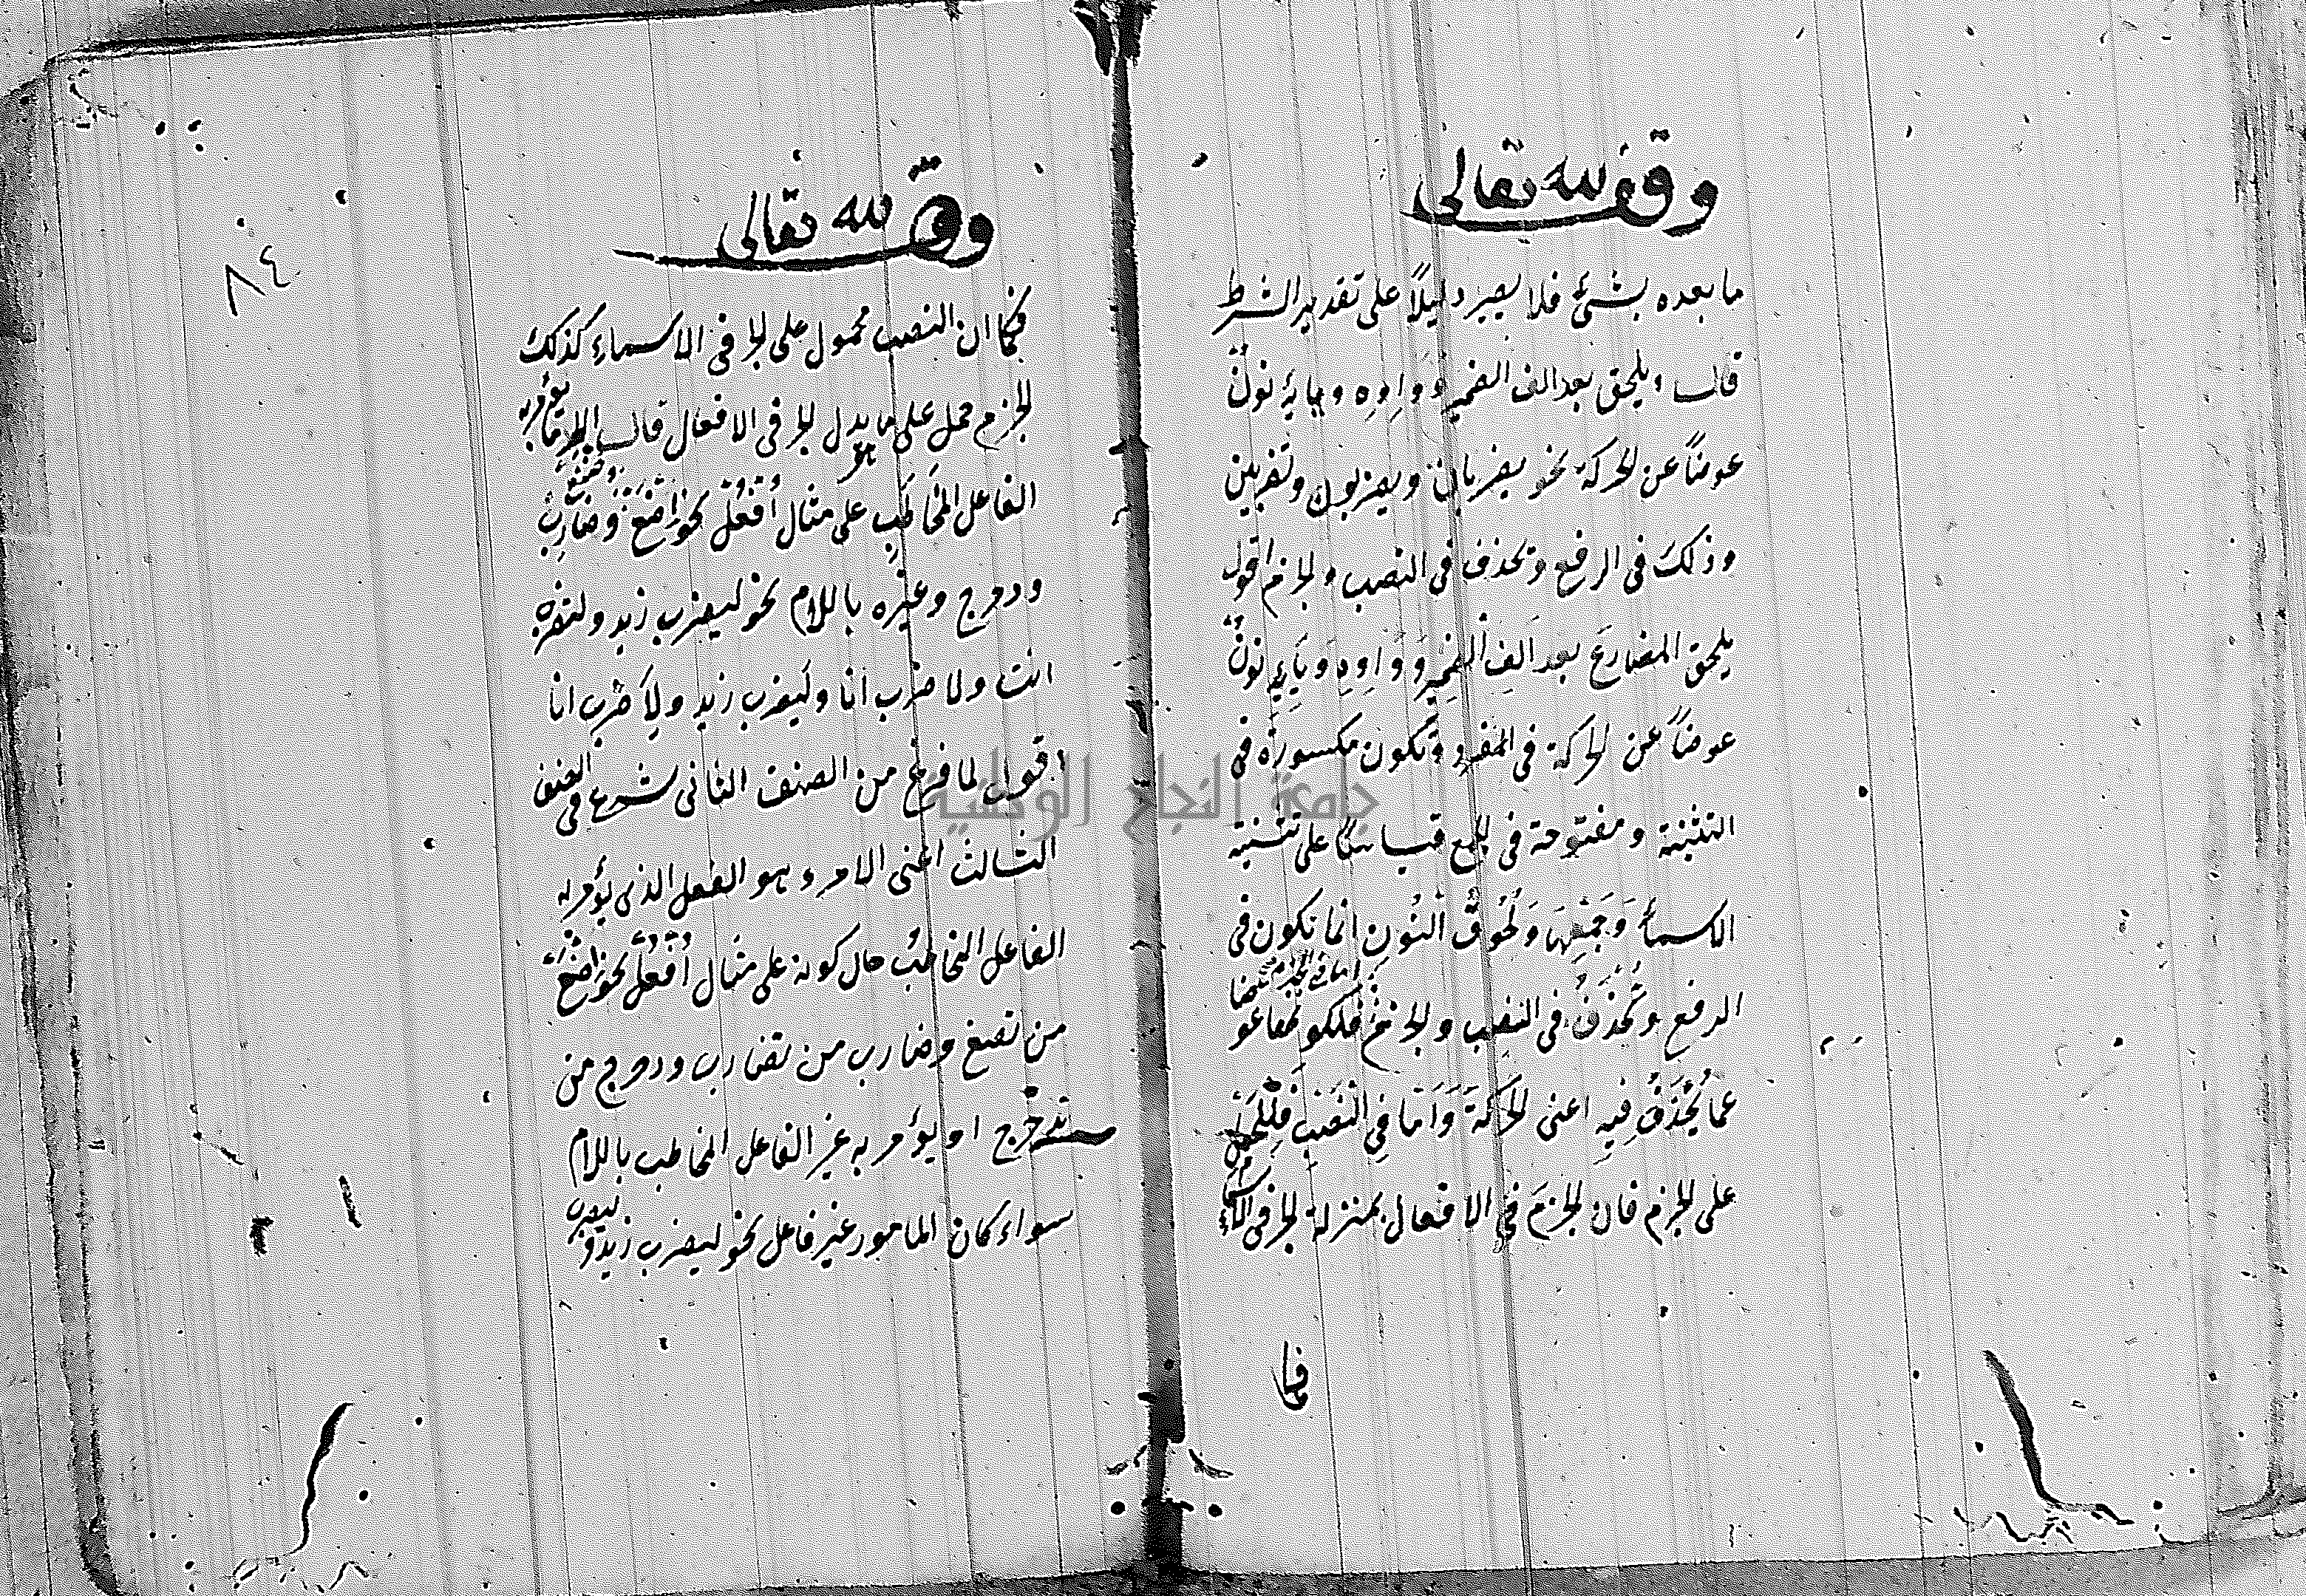 وقف لله تعالى
ما بعده بشئ فلا يصير دليلًا على تقدير الشرط
قال ويلحق بعد الف الضمير وَوَاوِه ويايهِ نونٌ
عوضًا عن الحركة نحو يضربان ويضربون وتضربين
وذلك فى الرفع وتحذف فى النصب والجزم اقول
يلحق المضارعَ بعد اَلِفِ الضميرِ وَوَاوِهِ وَيَايِهِ نونٌ
عوضًا عن الحركة فى المفرد وتكون مكسورة فى
التثنية ومفتوحة فى الجمع قياسًا على تثنية
الاسماءِ وَجَمْعِهَا وَلُحُوقُ النُونِ انما تكون فى
الرفع وتُحْذَفُ فى النصب والجزم اما فى الجزم فلكونها عوضا
عما يُحْذَفُ فِيهِ اعنى الحَرَكَةَ وَاَمّا فِى النَصْبِ فَلِلْحَمْلِ
على الجزم فان الجزمَ فى الافعال بمنزلة الجر فى الاسماء
فكما
وقف لله تعالى
٨٤
فكما ان النصب محمول على الجر فى الاسماءِ كذلك
الجزم حمل على ما بدل الجر فى الافعال قال الامر ما يؤمر به
الفاعل المُخَاطَب على مثال اُفْعُلْ نحو ضَعْ وضَارِبْ
ودحرج وغيره باللام نحو ليضرب زيد ولتضرب
انت ولاضرب انا وليضرب زيد ولاُضرب انا
اقول لما فرغ من الصنف الثانى شرع فى الصنف
الثالث اعنى الامر وهو الفعل الذى يؤمر به
الفاعل المخاطبُ حال كونه على مثال اُفْعُلْ نحو ضَعْ
من تضع وضارب من تضارب ودحرج من
تدحرج او يؤمر به غير الفاعل المخاطب باللام
سواء كان المامور غير فاعل نحو ليضرب زيد وليضرب
جامعة النجاح الوطنية